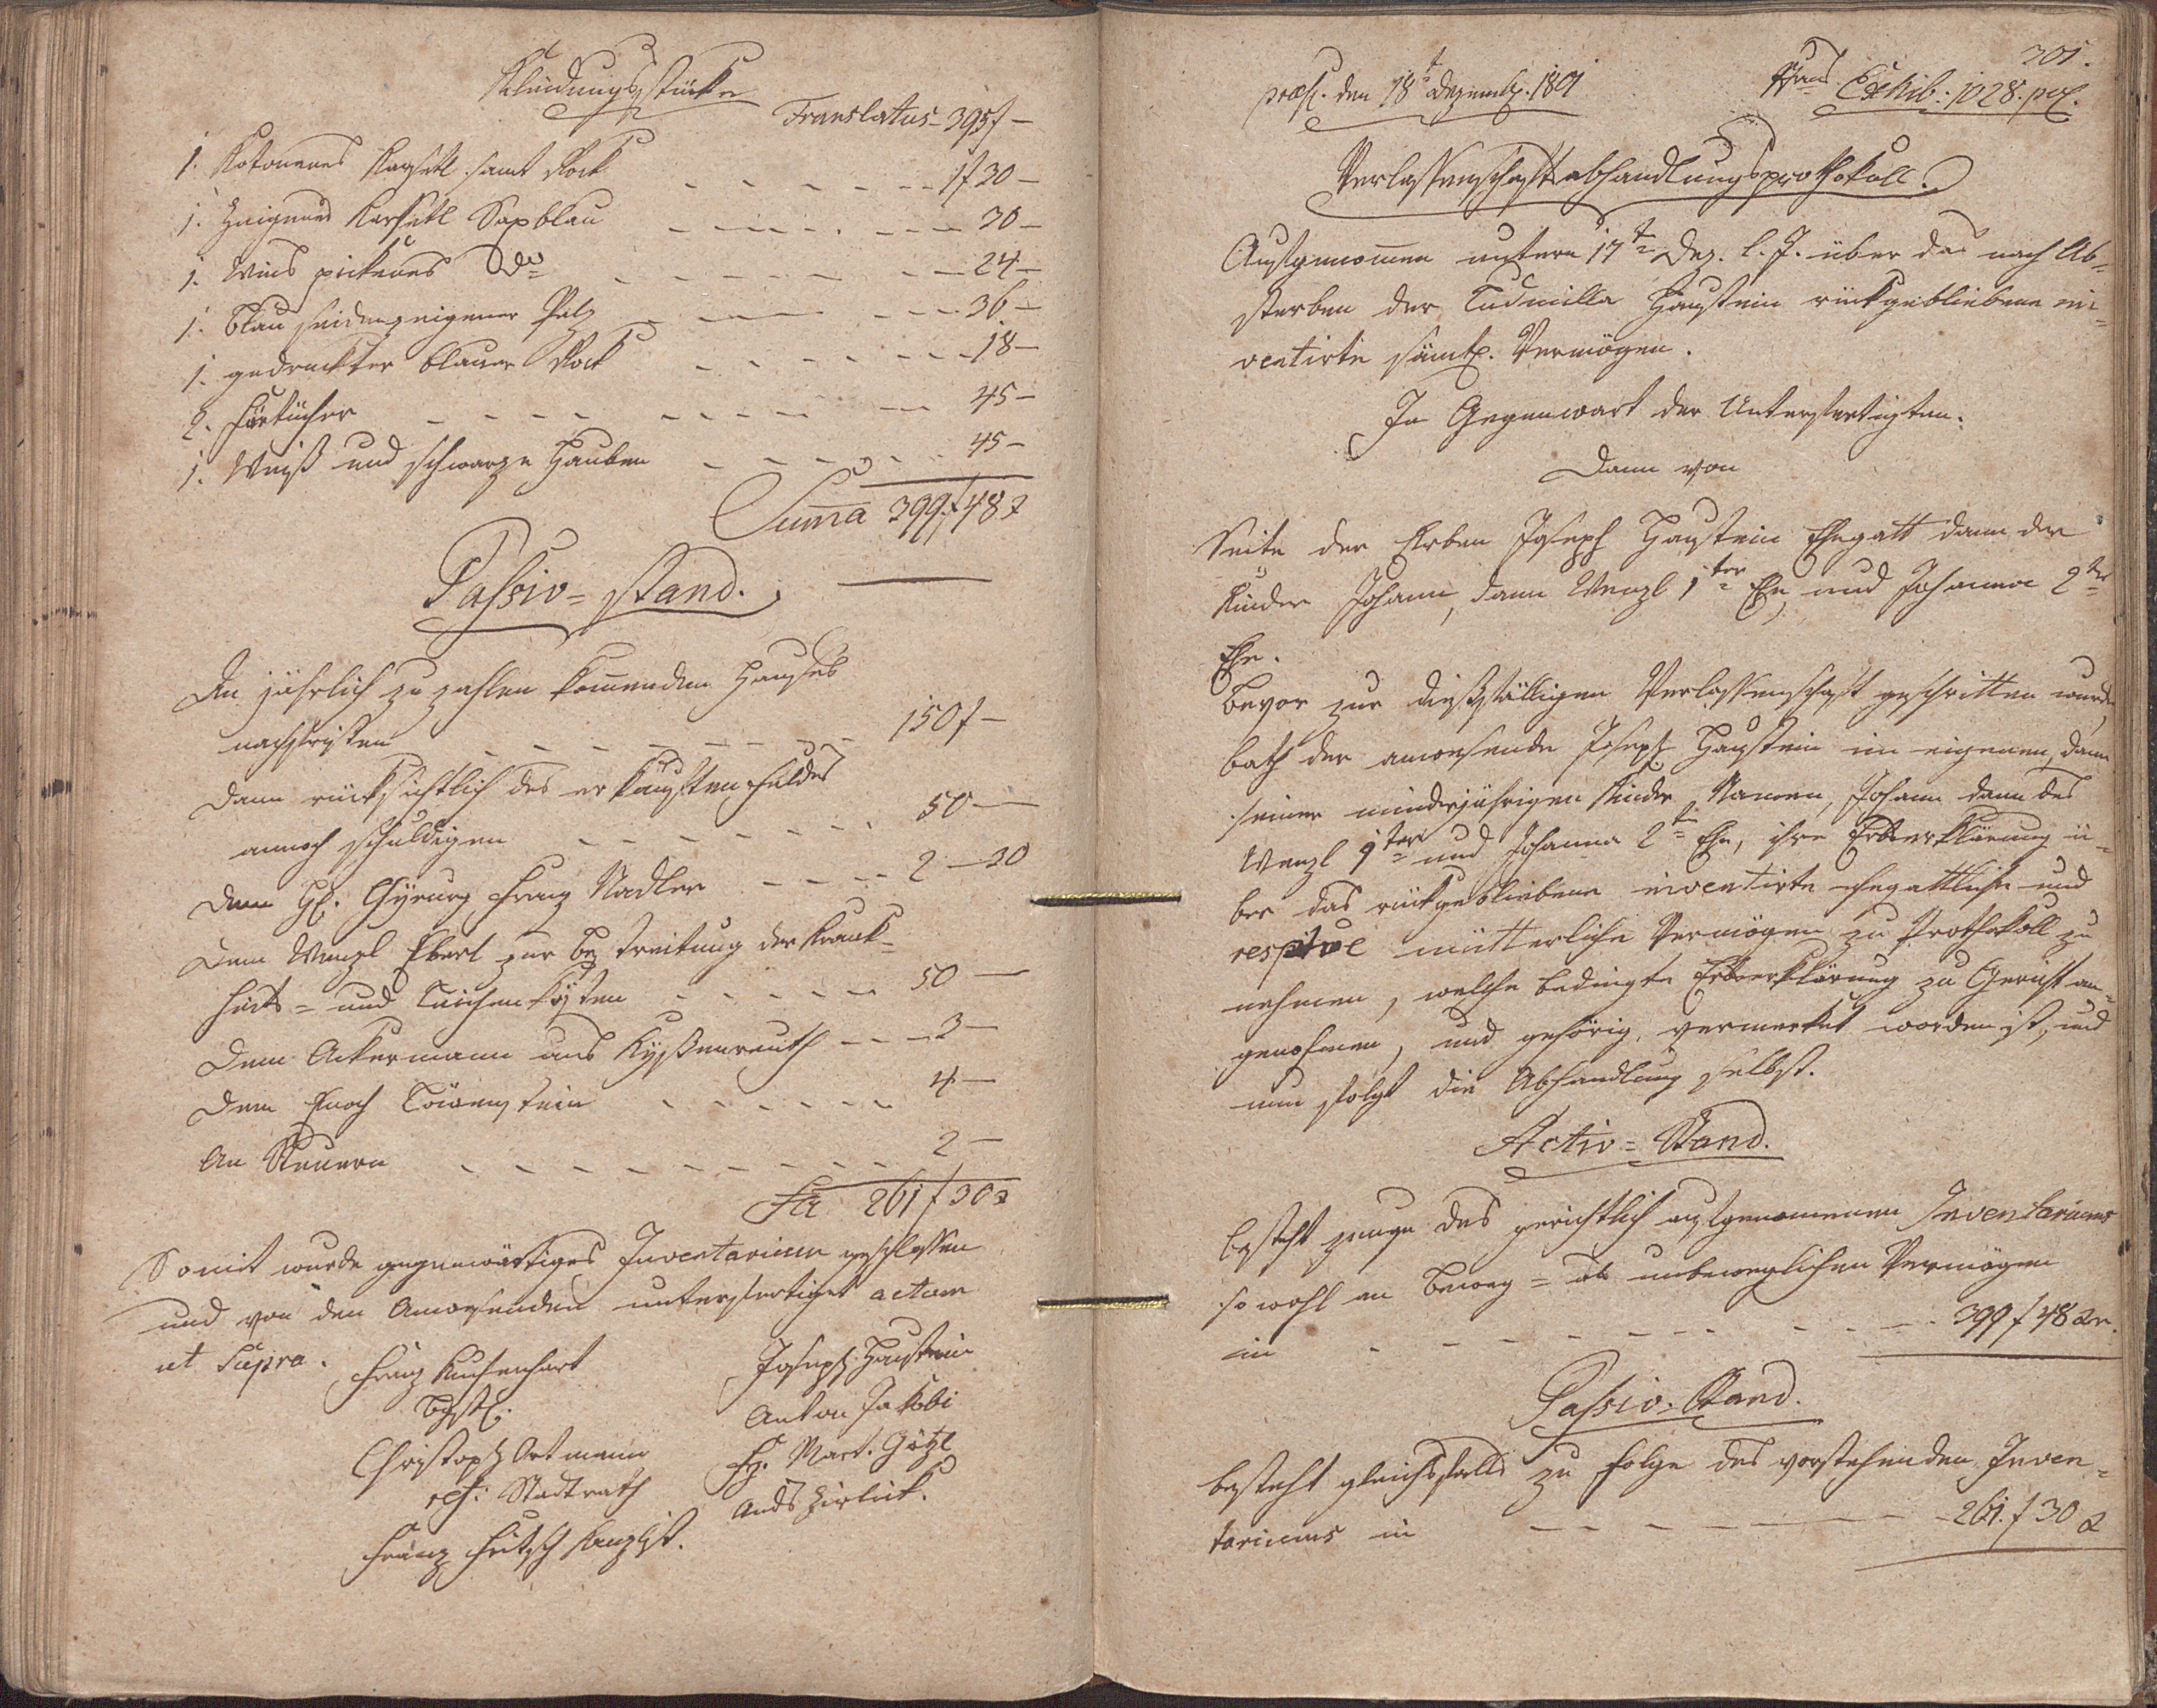 Kleidungsstücke
Translatus - 395 f -
1. Kotonenes Korsetl samt Rock - - - 1 f 30 -
1. Zeigenes Korsetl Saxblau - - - 30 -
1. Weis pickenes dto - - - 24 -
1. Blau seidenzeigener Pelz - - - 36 -
1. gedruckter blauer Rock - - - 18 -
2. Fürtücher - - - 45 -
1. Weiß und schwarze Hauben - - - 45 -
Suma 399 f 48 x
Passiv = stand.
An jährlich zu zahlen komenden Hauses
nachfristen - - - 150 f -
Dann rücksichtlich des erkauften Feldes
annoch schuldigen - - - 50 -
Dem H. Chyrurg Franz Nadler - - - 2 - 30
Dem Wenzl Ebert zur Bestreitung der Krank-
heits = und Leichenkösten - - - 50 -
Dem Ackermann aus - - - 3 -
Dem Enoch Löwenstein - - - 4 -
An Steuern - - - 2 -
Sa 261 f 30 x
Somit wurde gegenwärtiges Inventarium geschlossen
und von den Anwesenden unterfertiget actum
ut Supra.
Franz
Joseph Haustein
Anton Jakobi
Christoph Ortmann
gep: Stadtrath
Fz. Mart. Götzl
Ands Zirlick.
Franz Fritsch Kanzlist.
301.
præs. den 18t Dezemb. 1801
Exhib: 1028. pol.
Verlassenschaftsabhandlungsprothokoll.
Aufgenomen untern 17t Dez. l. J. über das nach Ab-
sterben der Ludmilla Haustein rückgebliebene in-
ventirte sämtl. Vermögen.
In Gegenwart der Unterfertigten.
Dann von
Seite der Erben Joseph Haustein Ehegatt dann der
Kinder Johann, dann Wenzl 1ter Ehe, und Johanna 2ter
Ehe.
Bevor zur dießfälligen Verlassenschaft geschritten wurde,
bath der anwesende Joseph Haustein im eigenen, dann
seiner minderjährigen Kinder Namen, Johann dann des
Wenzl 1ter und Johanna 2t Ehe, ihre Erbserklärung ü-
ber das rückgebliebene inventirte ehegattliche und
respive mütterliche Vermögen zu Prothokoll zu
nehmen, welche bedingte Erbserklärung zu Gericht an-
genohmen, und gehörig vermerket worden ist, und
nun folgt die Abhandlung selbst.
Activ = Stand.
besteht zeuge des gerichtlich aufgenommenen Inventariums
sowohl an beweg = als unbeweglichen Vermögen
in - - - 399 f 48 xr.
Passiv = Stand.
besteht gleichfalls zu Folge des vorstehenden Inven-
tariums in - - - 261. f 30 x